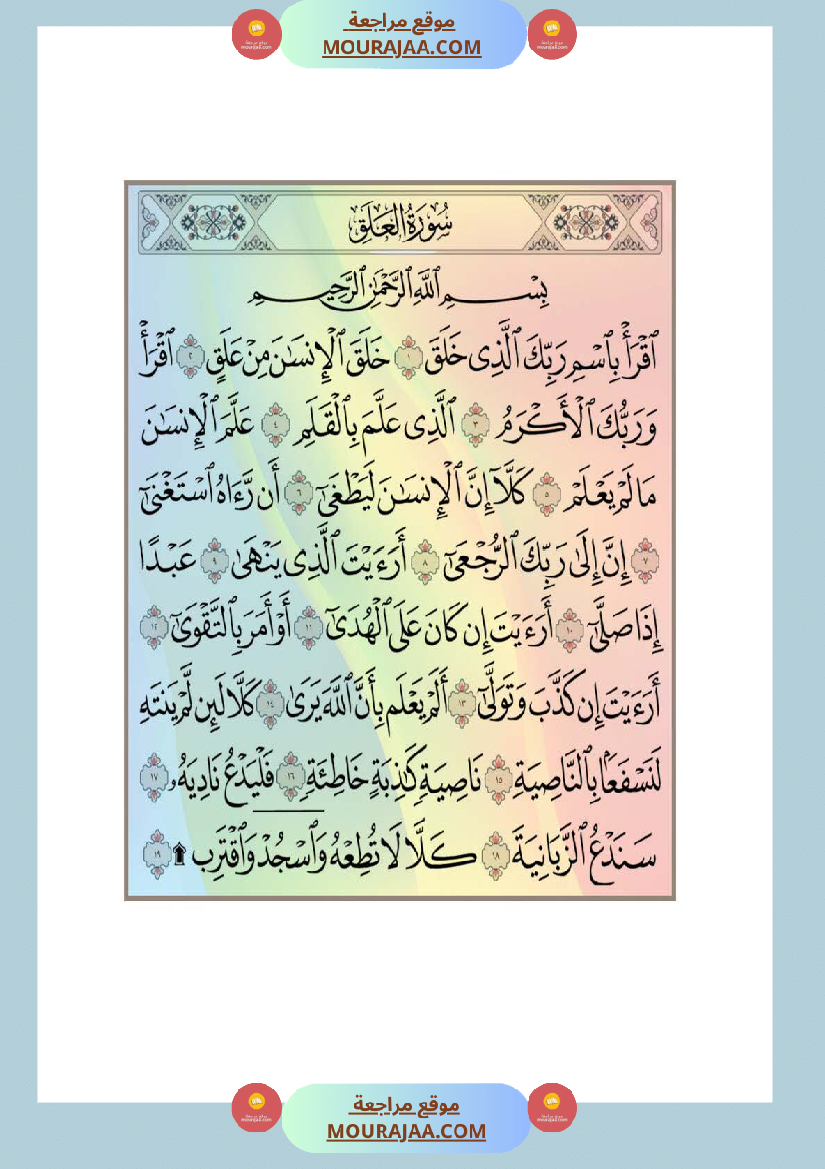 موقع مراجعة
MOURAJAA.COM
سُورَةُ الْعَلَقِ
بِسْمِ ٱللَّهِ ٱلرَّحْمَٰنِ ٱلرَّحِيمِ
ٱقْرَأْ بِٱسْمِ رَبِّكَ ٱلَّذِى خَلَقَ ١ خَلَقَ ٱلْإِنسَٰنَ مِنْ عَلَقٍ ٢ ٱقْرَأْ
وَرَبُّكَ ٱلْأَكْرَمُ ٣ ٱلَّذِى عَلَّمَ بِٱلْقَلَمِ ٤ عَلَّمَ ٱلْإِنسَٰنَ
مَا لَمْ يَعْلَمْ ٥ كَلَّآ إِنَّ ٱلْإِنسَٰنَ لَيَطْغَىٰٓ ٦ أَن رَّءَاهُ ٱسْتَغْنَىٰٓ
٧ إِنَّ إِلَىٰ رَبِّكَ ٱلرُّجْعَىٰٓ ٨ أَرَءَيْتَ ٱلَّذِى يَنْهَىٰ ٩ عَبْدًا
إِذَا صَلَّىٰٓ ١٠ أَرَءَيْتَ إِن كَانَ عَلَى ٱلْهُدَىٰٓ ١١ أَوْ أَمَرَ بِٱلتَّقْوَىٰٓ ١٢
أَرَءَيْتَ إِن كَذَّبَ وَتَوَلَّىٰٓ ١٣ أَلَمْ يَعْلَم بِأَنَّ ٱللَّهَ يَرَىٰ ١٤ كَلَّا لَئِن لَّمْ يَنتَهِ
لَنَسْفَعًۢا بِٱلنَّاصِيَةِ ١٥ نَاصِيَةٍ كَٰذِبَةٍ خَاطِئَةٍ ١٦ فَلْيَدْعُ نَادِيَهُۥ ١٧
سَنَدْعُ ٱلزَّبَانِيَةَ ١٨ كَلَّا لَا تُطِعْهُ وَٱسْجُدْ وَٱقْتَرِب ۩ ١٩
موقع مراجعة
MOURAJAA.COM